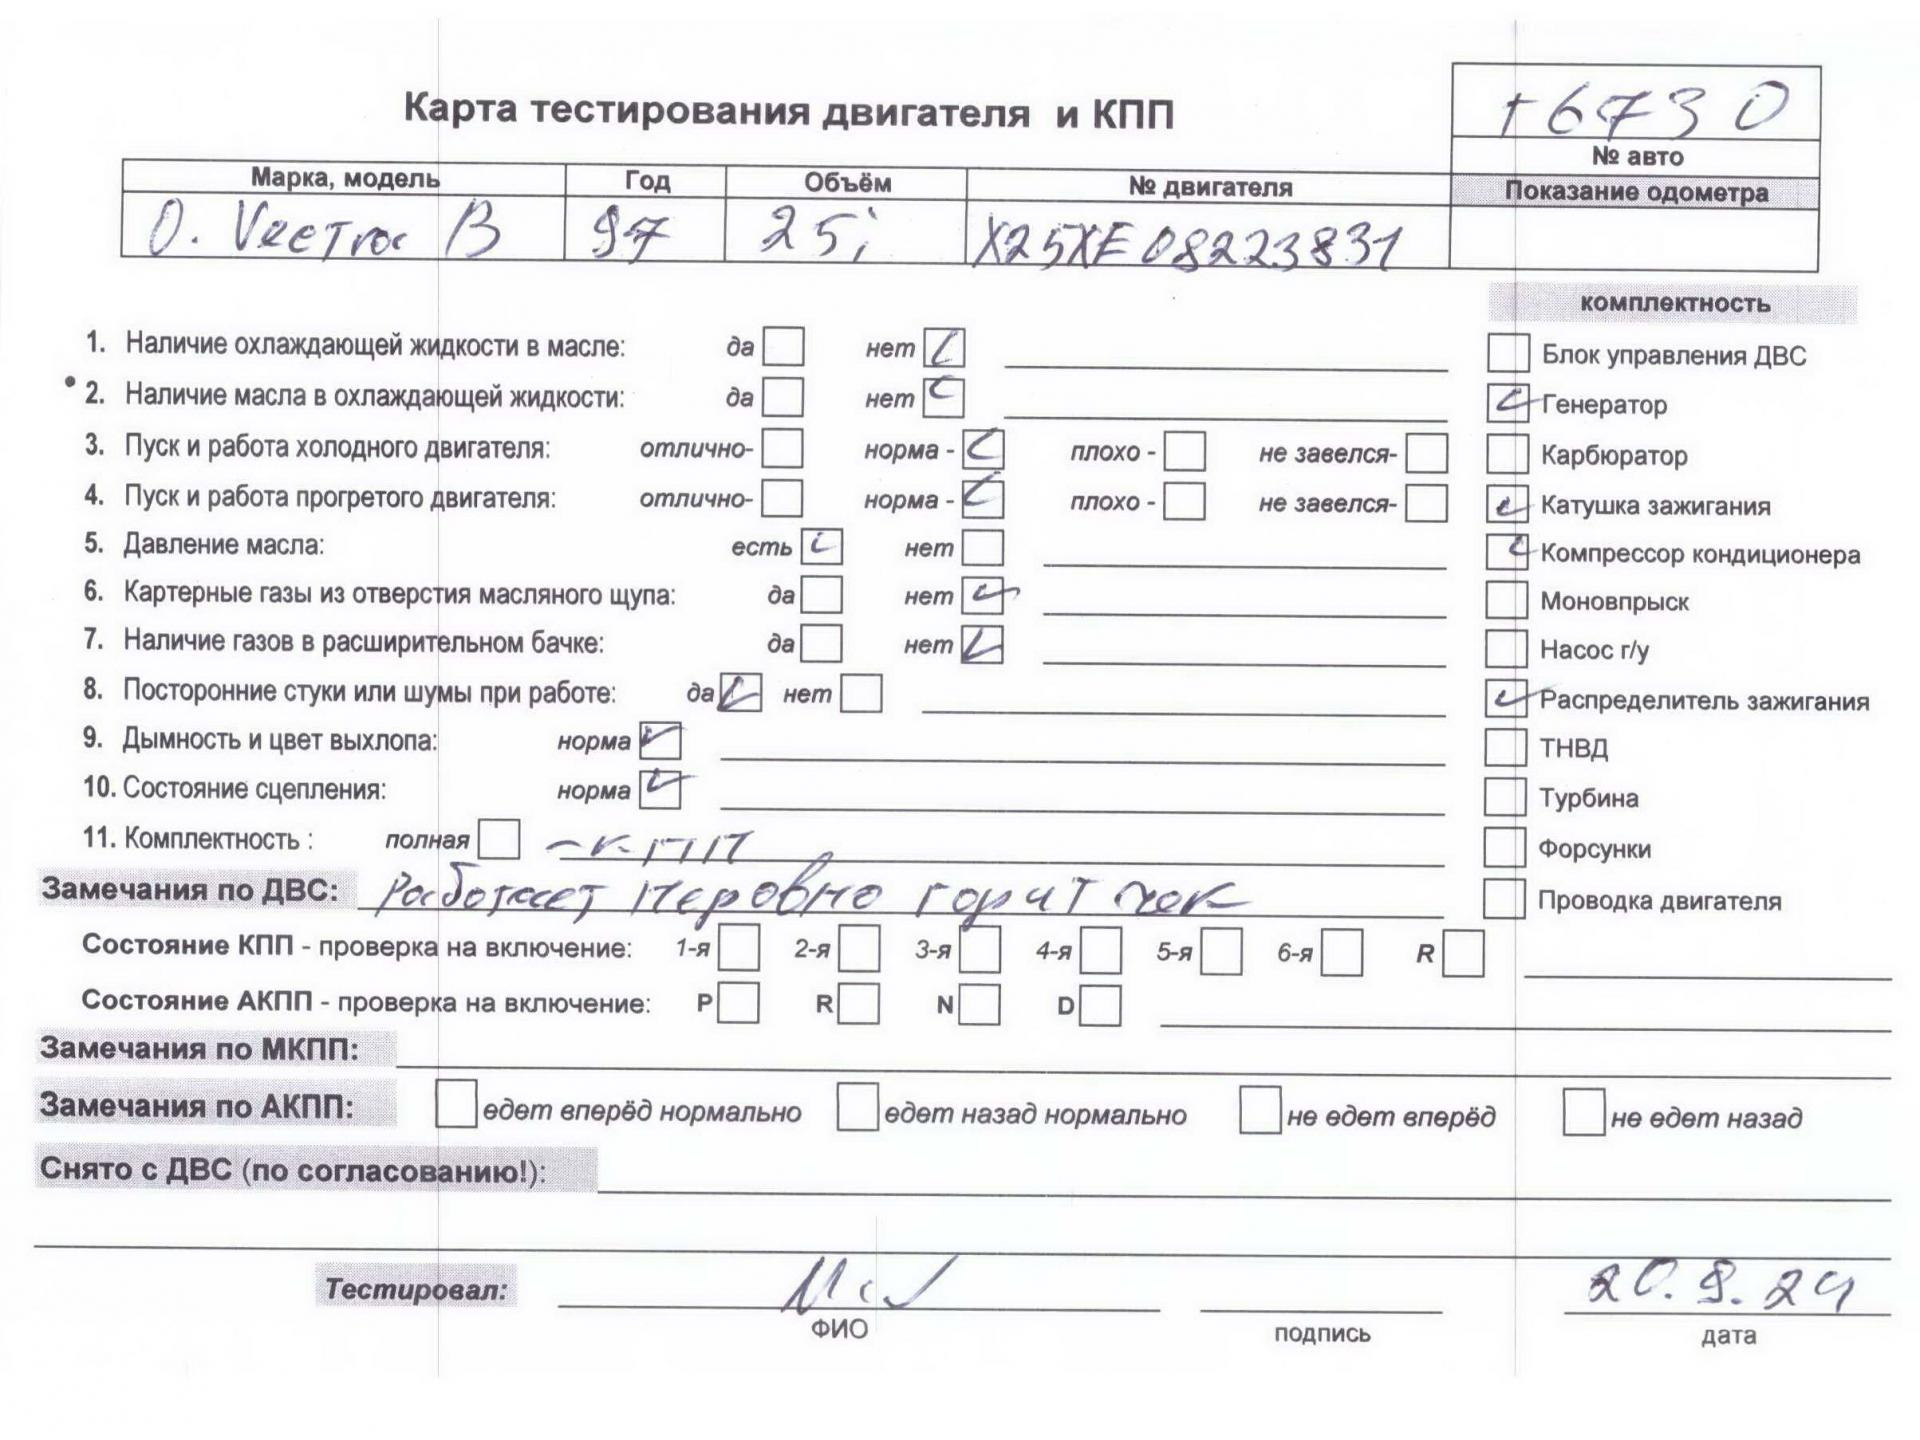 Карта тестирования двигателя и КПП
+6730
№ авто
Марка, модель Год Объём № двигателя Показание одометра
O. Vectra B 97 25i X25XE08223831
комплектность
1. Наличие охлаждающей жидкости в масле: да нет
Блок управления ДВС
2. Наличие масла в охлаждающей жидкости: да нет
Генератор
3. Пуск и работа холодного двигателя: отлично- норма - плохо - не завелся-
Карбюратор
4. Пуск и работа прогретого двигателя: отлично- норма - плохо - не завелся-
Катушка зажигания
5. Давление масла: есть нет
Компрессор кондиционера
6. Картерные газы из отверстия масляного щупа: да нет
Моновпрыск
7. Наличие газов в расширительном бачке: да нет
Насос г/у
8. Посторонние стуки или шумы при работе: да нет
Распределитель зажигания
9. Дымность и цвет выхлопа: норма
ТНВД
10. Состояние сцепления: норма
Турбина
11. Комплектность : полная -КПП
Форсунки
Замечания по ДВС: Работает неровно горит чек
Проводка двигателя
Состояние КПП - проверка на включение: 1-я 2-я 3-я 4-я 5-я 6-я R
Состояние АКПП - проверка на включение: P R N D
Замечания по МКПП:
Замечания по АКПП: едет вперёд нормально едет назад нормально не едет вперёд не едет назад
Снято с ДВС (по согласованию!):
Тестировал: 20.9.24
ФИО подпись дата